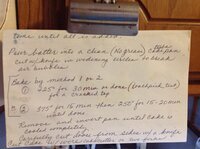 time until all is added.
Pour batter into a clean (No grease) cake pan
cut w/knife in widening circles to break
air bubbles
Bake by method 1 or 2
① 325° for 30 min or done (toothpick test)
or cracked top
② 375° for 15 min then 250° for 15-20 min
until done
Remove and invert pan until cake is
cooled completely
from sides w/a knife